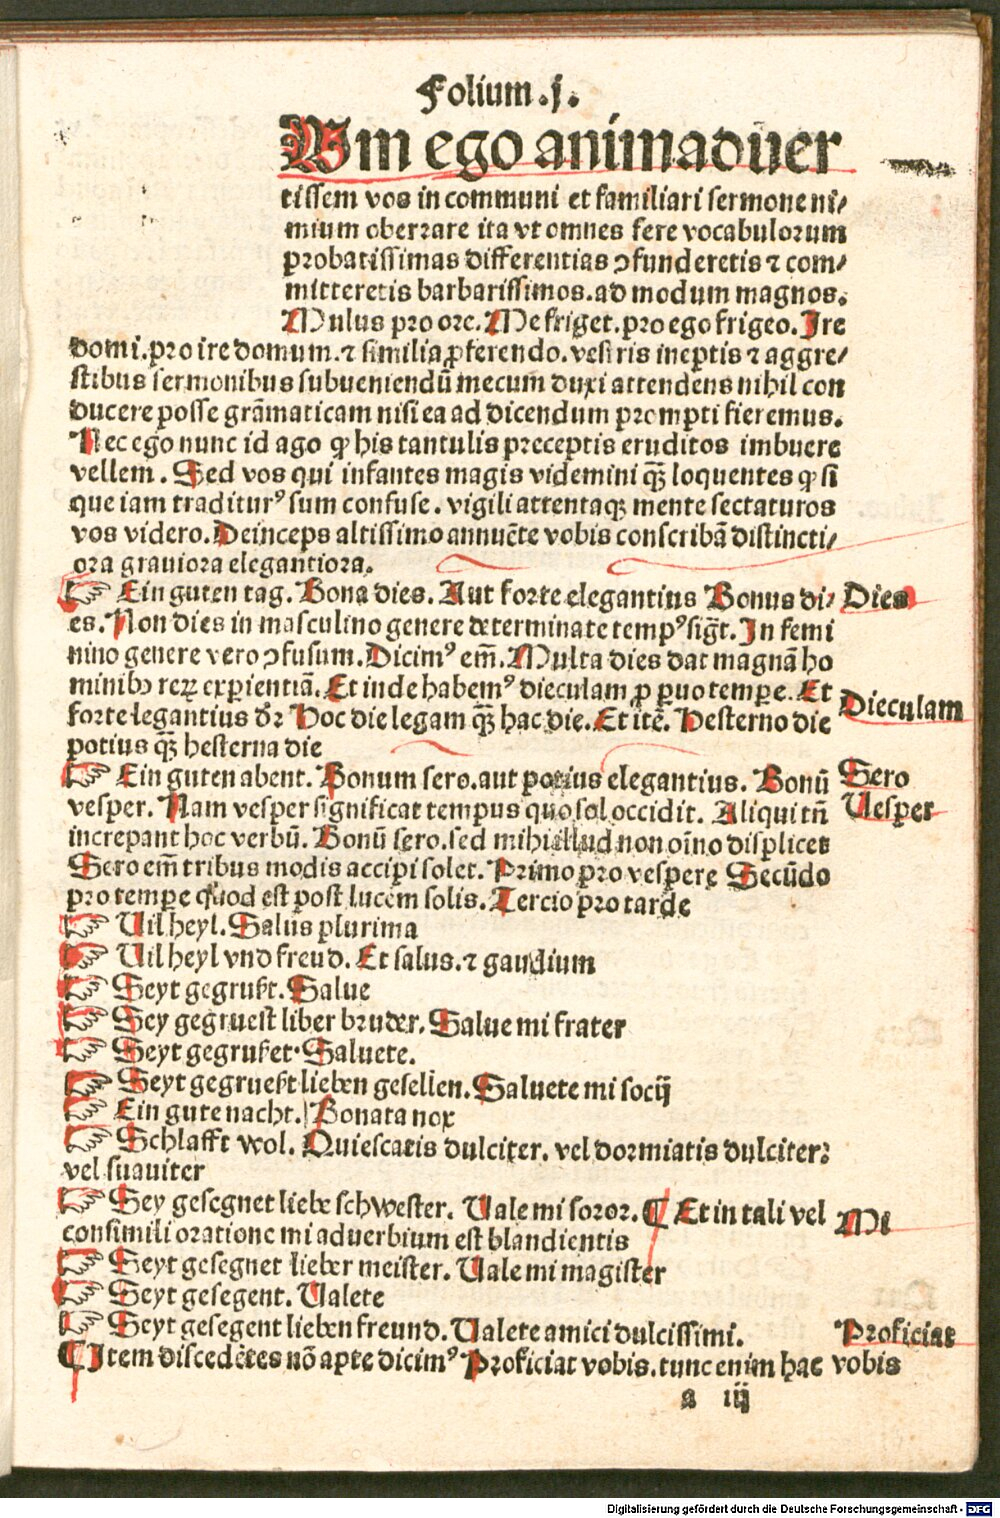 Folium .j.
Cum ego animaduer
tissem vos in communi et familiari sermone ni/
mium oberrare ita vt omnes fere vocabulorum
probatissimas differentias ↄfunderetis ⁊ com/
mitteretis barbarissimos. ad modum magnos.
Mulus pro orc. Me friget. pro ego frigeo. Ire
domi. pro ire domum. ⁊ similia ꝓferendo. vestris ineptis ⁊ aggre/
stibus sermonibus subueniendū mecum duxi attendens nihil con
ducere posse grāmaticam nisi ea ad dicendum prompti fieremus.
Nec ego nunc id ago ꝙ his tantulis preceptis eruditos imbuere
vellem. Sed vos qui infantes magis videmini qȝ̄ loquentes ꝙ si
que iam traditurꝰ sum confuse. vigili attentaqȝ mente sectaturos
vos videro. Deinceps altissimo annuēte vobis conscribā distincti/
ora grauiora elegantiora.
☞ Ein guten tag. Bona dies. Aut forte elegantius Bonus di/ Dies
es. Non dies in masculino genere determinate tempꝰ sigt̄. In femi
nino genere vero ↄfusum. Dicimꝰ em̄. Multa dies dat magnā ho
minibꝰ reꝝ experientiā. Et inde habemꝰ dieculam ꝓ paruo tempe. Et Dieculam
forte legantius dr̄ Hoc die legam qȝ̄ hac die. Et itē. Hesterno die
potius qȝ̄ hesterna die
☞ Ein guten abent. Bonum sero. aut potius elegantius. Bonū Sero
vesper. Nam vesper significat tempus quo sol occidit. Aliqui tn̄ Uesper
increpant hoc verbū. Bonū sero. sed mihi illud non oīno displicet
Sero em̄ tribus modis accipi solet. Primo pro vespere Secūdo
pro tempe quod est post lucem solis. Tercio pro tarde
☞ Uil heyl. Salus plurima
☞ Uil heyl vnd freud. Et salus. ⁊ gaudium
☞ Seyt gegrußt. Salue
☞ Sey gegruest liber bruder. Salue mi frater
☞ Seyt gegrußet. Saluete.
☞ Seyt gegrueßt lieben gesellen. Saluete mi socij
☞ Ein gute nacht. Bonata nox
☞ Schlafft wol. Quiescatis dulciter. vel dormiatis dulciter:
vel suauiter
☞ Sey gesegnet liebe schwester. Uale mi soror. ¶ Et in tali vel Mi
consimili oratione mi aduerbium est blandientis
☞ Seyt gesegnet lieber meister. Uale mi magister
☞ Seyt gesegent. Ualete
☞ Seyt gesegent lieben freund. Ualete amici dulcissimi. Proficiat
¶ Item discedētes nō apte dicimꝰ Proficiat vobis. tunc enim hac vobis
a iij
Digitalisierung gefördert durch die Deutsche Forschungsgemeinschaft - DFG